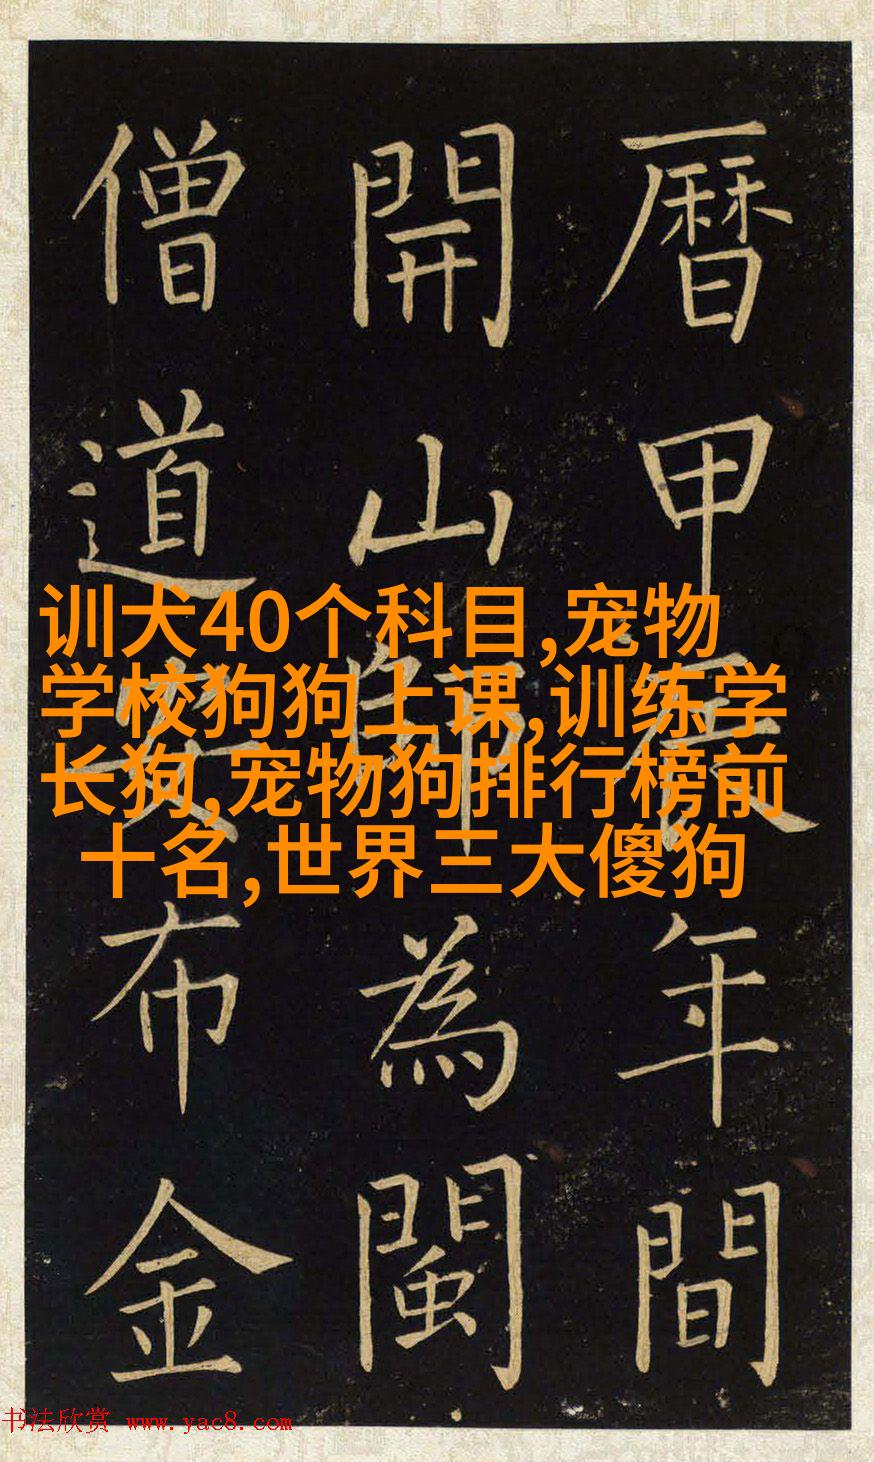 曆甲辰年間
開山師為閩
僧道安布金
训犬40个科目,宠物
学校狗狗上课,训练学
长狗,宠物狗排行榜前
十名,世界三大傻狗
书法欣赏 www.yac8.com